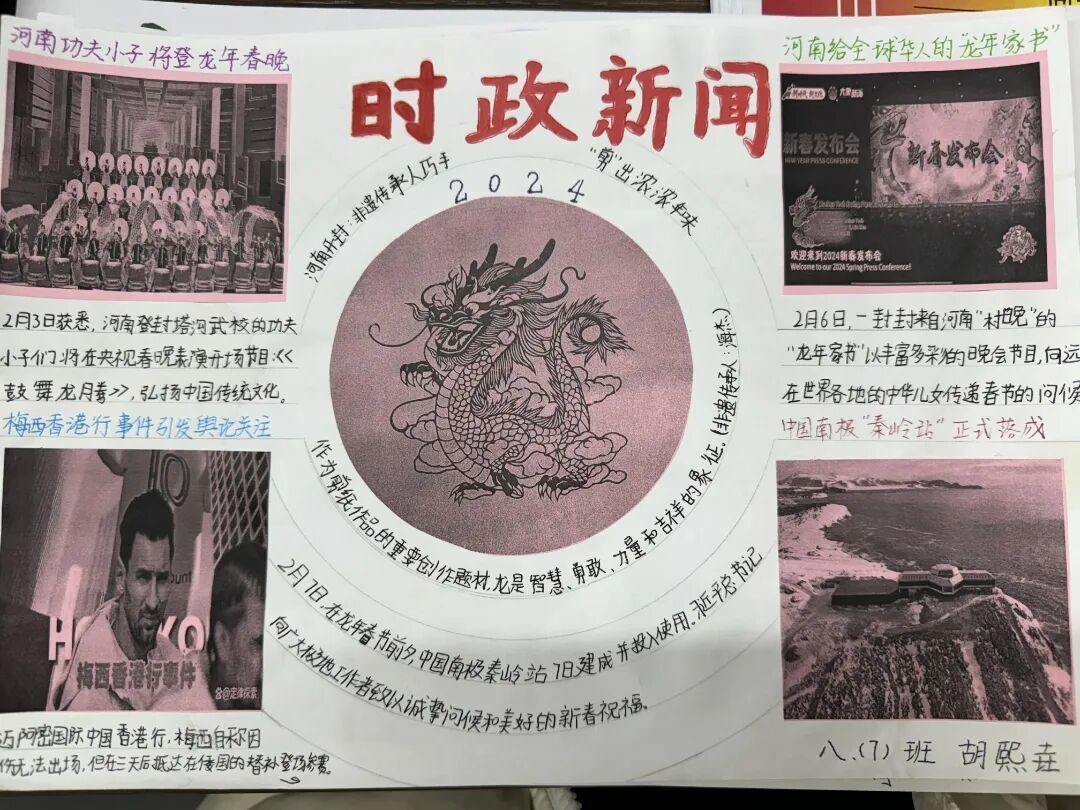 时政新闻
2024
河南功夫小子将登龙年春晚
2月3日获悉，河南登封塔沟武校的功夫
小子们将在央视春晚表演开场节目：《
鼓舞龙腾》，弘扬中国传统文化。
梅西香港行事件引发舆论关注
梅西香港行事件
@定律探索
迈阿密国际中国香港行，梅西自称因
伤无法出场，但在三天后抵达在倭国的替补登场参赛。
河南开封：非遗传承人巧手
"剪"出浓浓年味
作为剪纸作品的重要创作题材，龙是智慧、勇敢、力量和吉祥的象征。(非遗传承人：
2月7日，在龙年春节前夕，中国南极秦岭站7日建成并投入使用。习近平总书记
向广大极地工作者致以诚挚问候和美好的新春祝福。
河南给全球华人的"龙年家书"
大象新闻
新春发布会
NEW YEAR PRESS CONFERENCE
新春发布会
欢迎来到2024新春发布会
Welcome to our 2024 Spring Press Conference!
2月6日，一封封来自河南"村晚"的
"龙年家书"以丰富多彩的晚会节目，向远
在世界各地的中华儿女传递春节的问候
中国南极"秦岭站"正式落成
八.(7)班 胡熙垚